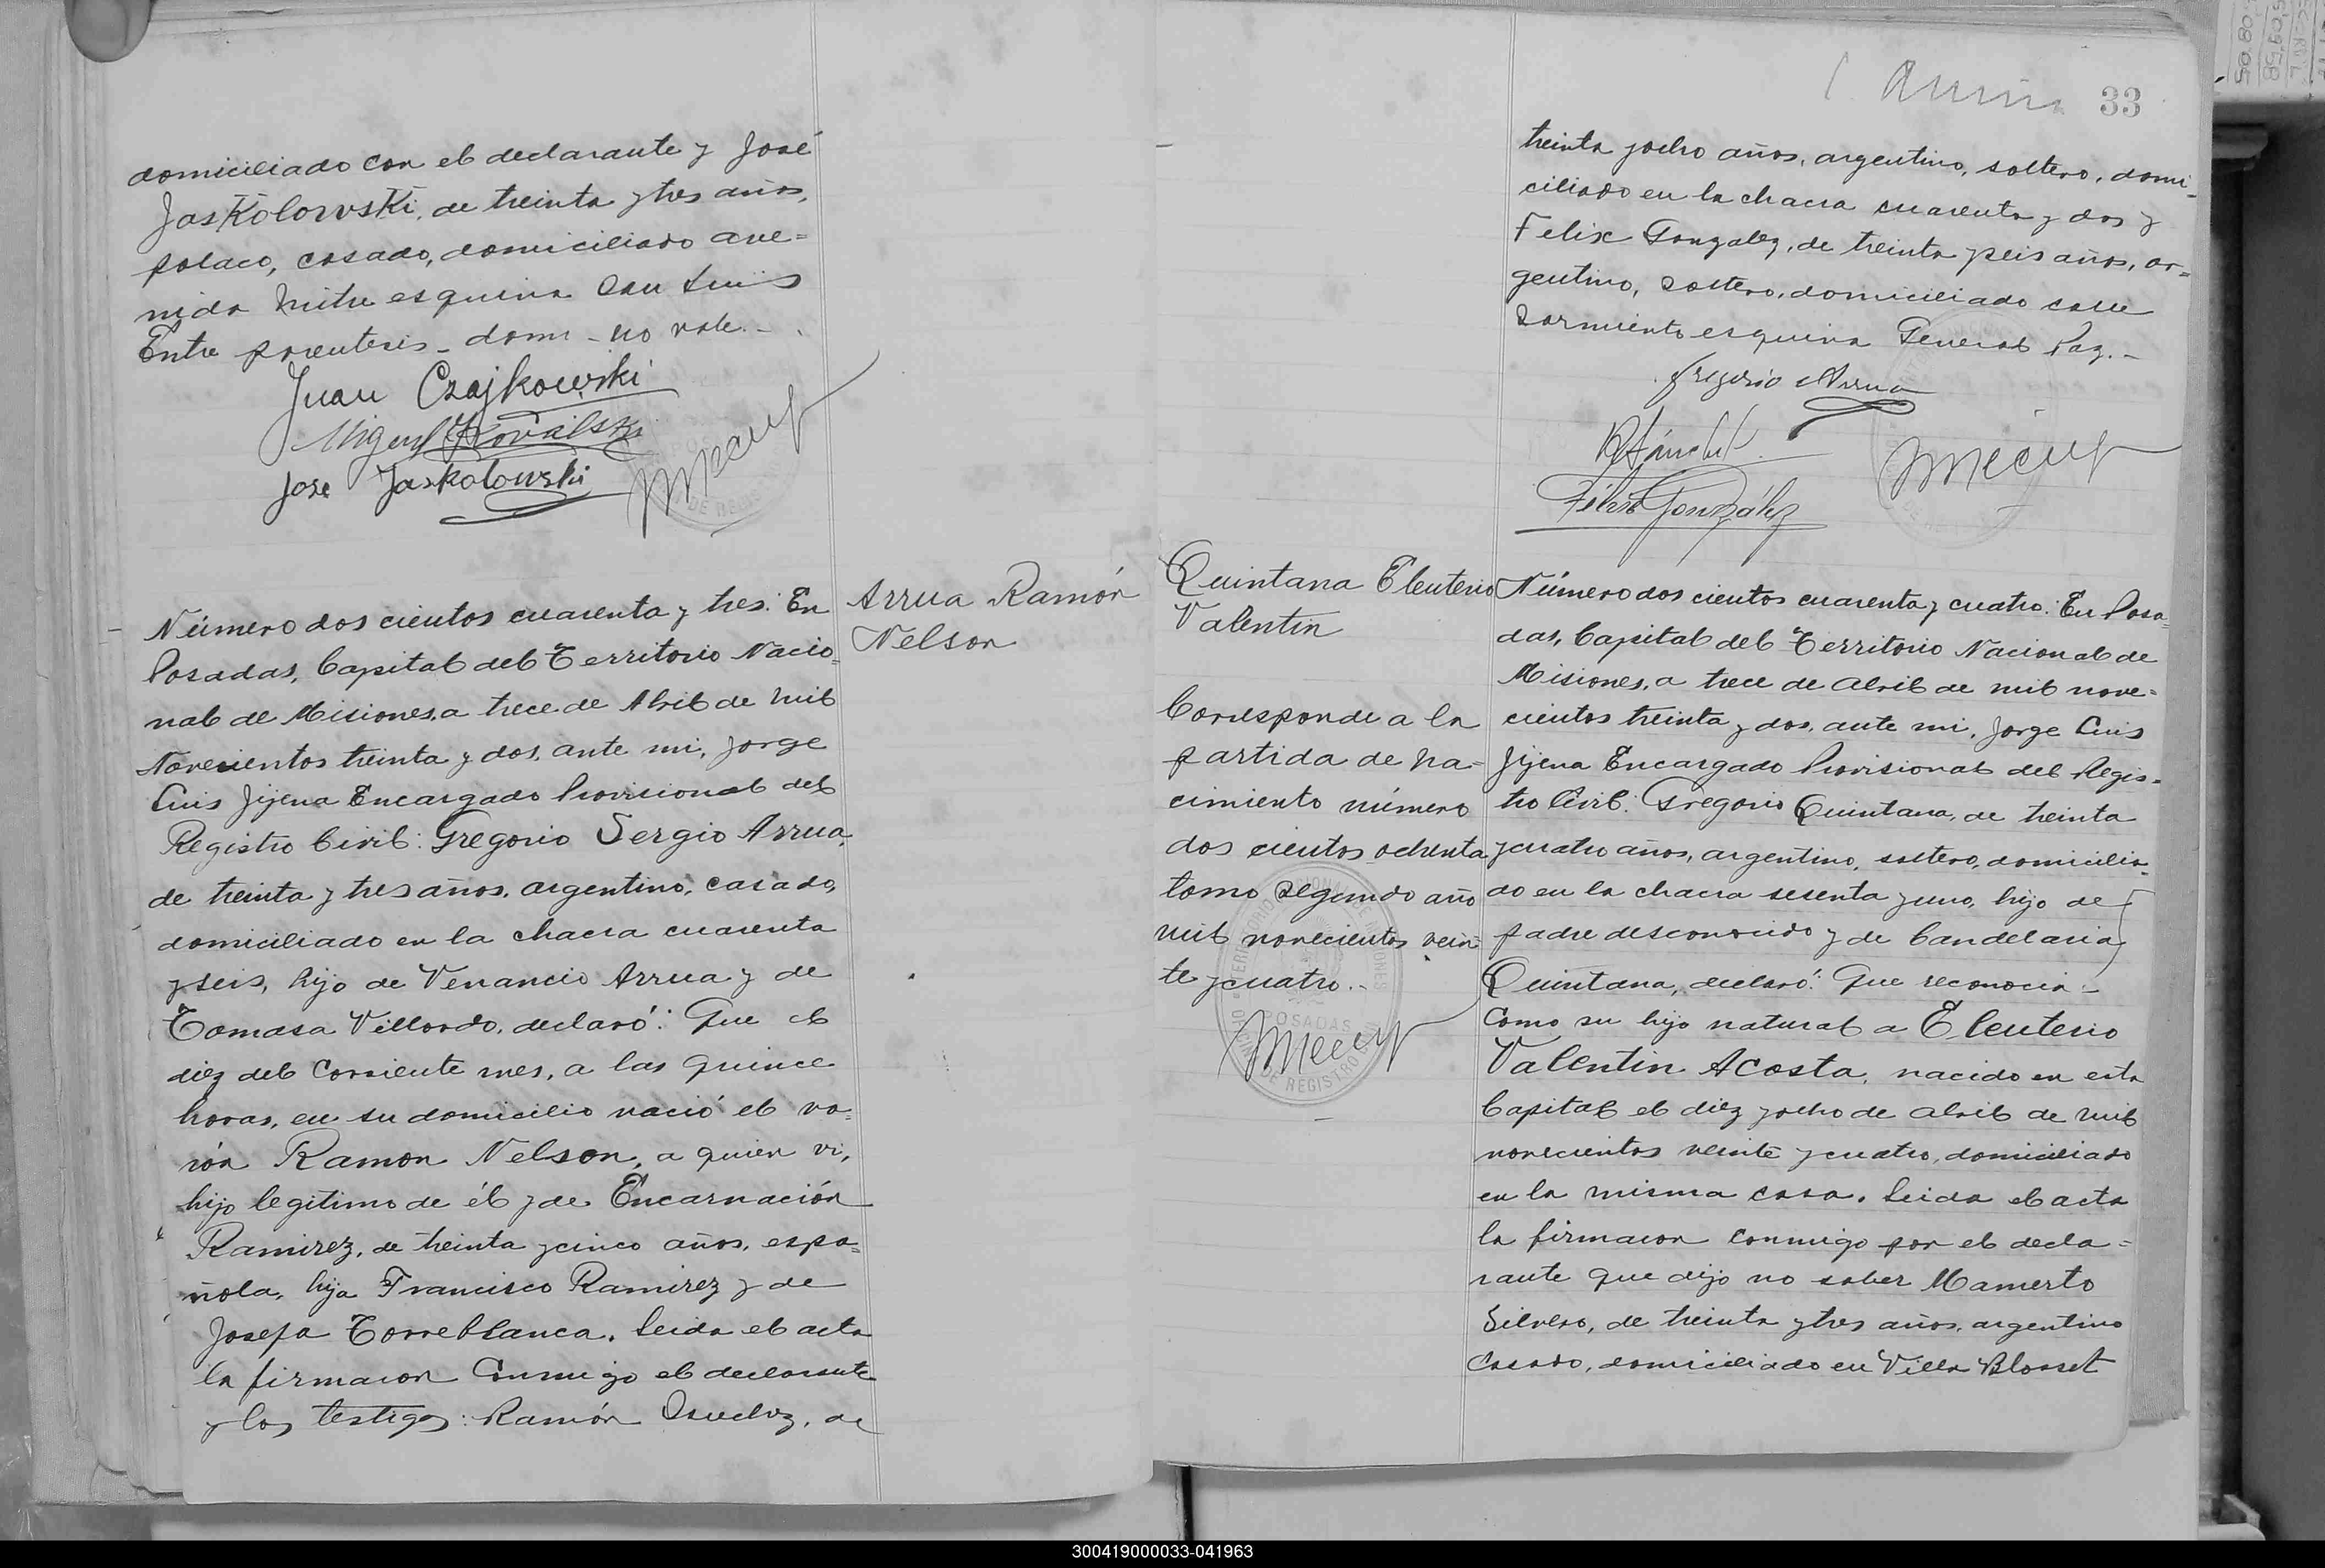 domiciliado con el declarante y José
Jaskolowski, de treinta y tres años,
polaco, casado, domiciliado ave=
nida Mitre esquina San Luis
Entre parentesis - domi - no vale. -
Juan Czajkowski
Miguel Kowalski
José Jaskolowski
Arrua Ramón
Nelson
Número dos cientos cuarenta y tres: En
Posadas, Capital del Territorio Nacio=
nal de Misiones, a trece de Abril de mil
Novecientos treinta y dos, ante mi, Jorge
Luis Jijena Encargado Provisional del
Registro Civil: Gregorio Sergio Arrua,
de treinta y tres años, argentino, casado,
domiciliado en la chacra cuarenta
y seis, hijo de Venancio Arrua y de
Tomasa Villordo, declaró: Que el
diez del Corriente mes, a las quince
horas, en su domicilio nació el va=
rón Ramon Nelson, a quien vi,
hijo legitimo de él y de Encarnación
Ramirez, de treinta y cinco años, espa=
ñola, hija Francisco Ramirez y de
Josefa Torreblanca. Leida el acta
la firmaron Conmigo el declarante
y los testigos: Ramón de
33
treinta y ocho años, argentino, soltero, domi=
ciliado en la chacra cuarenta y dos y
Felix Gonzalez, de treinta y seis años, ar=
gentino, soltero, domiciliado calle
Sarmiento esquina General Paz. -
Gregorio Arrua
Félix González
Quintana Eleuterio
Valentin
Corresponde a la
partida de na=
cimiento número
dos cientos ochenta
tomo segundo año
mil novecientos vein
te y cuatro. -
POSADAS
DE REGISTRO
Número dos cientos cuarenta y cuatro: En Posa=
das, Capital del Territorio Nacional de
Misiones, a trece de abril de mil nove=
cientos treinta y dos, ante mi, Jorge Luis
Jijena Encargado Provisional del Regis=
tro Civil: Gregorio Quintana, de treinta
y cuatro años, argentino, soltero, domicilia=
do en la chacra sesenta y uno, hijo de
padre desconocido y de Candelaria
Quintana, declaró: Que reconocia -
Como su hijo natural a Eleuterio
Valentin Acosta, nacido en esta
Capital el diez y ocho de abril de mil
novecientos veinte y cuatro, domiciliado
en la misma casa. Leida el acta
la firmaron Conmigo por el decla=
rante que dijo no saber Mamerto
Silvero, de treinta y tres años, argentino
Casado, domiciliado en Villa Blosset
300419000033-041963